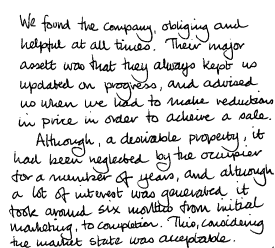 We found the company, obliging and
helpful at all times. Their major
assett was that they always kept us
updated on progress, and advised
us when we had to make reductions
in price in order to acheive a sale.
Although, a desirable property, it
had been neglected by the occupier
for a number of years, and although
a lot of interest was generated it
took around six months from initial
marketing, to completion. This, considering
the market state was acceptable.